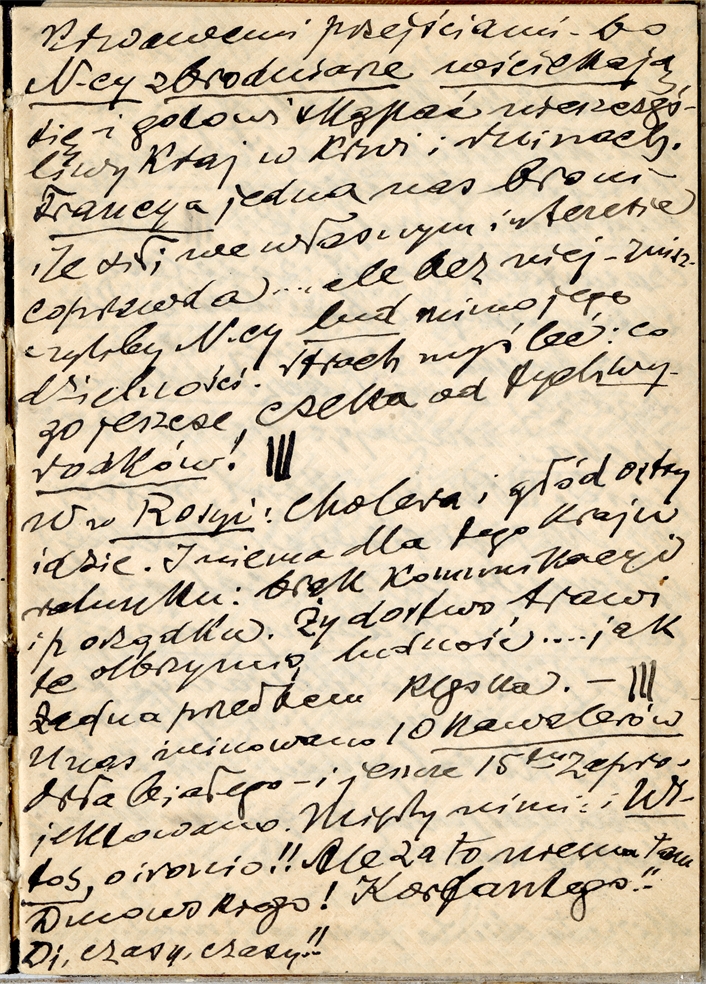 Krwawemi przejściami - bo
N-cy zbrodniarze wściekają
się i gotowi skąpać nieszczęś-
liwy Kraj w Krwi i ruinach.
Francya jedna nas broni
ile sił i we własnym interesie
coprawda ... ale bez niej - znisz-
czyliby N-cy lud mimo jego
dzielności. Strach myśleć: co
go jeszcze czeka od tych wy-
rodków! |||
W w Rosyi: Cholera i głód ostry
idzie. I niema dla tego Kraju
ratunku: brak Komunikacyi
i porządku. Żydostwo trawi
tę olbrzymią ludność .... jak
żadna przedtem Klęska. - |||
U nas mianowano 10 Kawalerów
Orła białego - i jeszcze 15tu zapro-
jektowano. Między nimi: i Wi-
tos, o ironio!! Ale za to niema tam
Dmowskiego! Korfantego!!
Oj, czasy, czasy!!